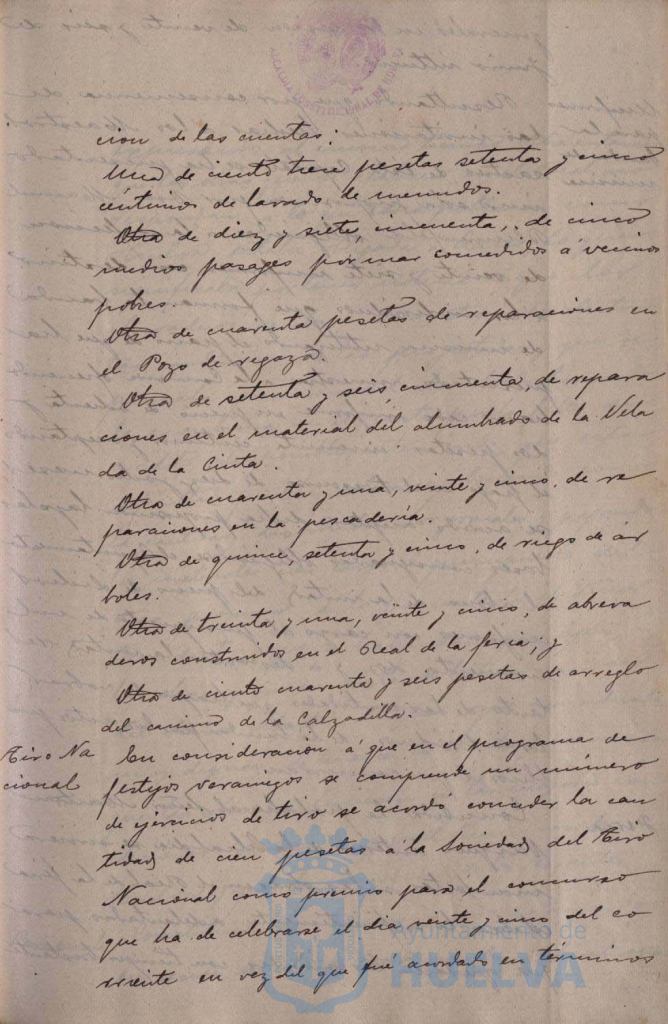 cion de las cuentas:
Una de ciento trece pesetas setenta y cinco
céntimos de lavado de menudos.
Otra de diez y siete, cincuenta, de cinco
medios pasages por mar concedidos á vecinos
pobres.
Otra de cuarenta pesetas de reparaciones en
el Pozo de
Otra de setenta y seis, cincuenta, de repara
ciones en el material del alumbrado de la Vela
da de la Cinta.
Otra de cuarenta y una, veinte y cinco, de re
paraciones en la pescadería.
Otra de quince, setenta y cinco, de riego de ár
boles.
Otra de treinta y una, veinte y cinco, de abreva
deros construidos en el Real de la feria; y
Otra de ciento cuarenta y seis pesetas de arreglo
del camino de la Calzadilla.
Tiro Na
cional
En consideracion á que en el programa de
festejos veraniegos se comprende un número
de ejercicios de tiro se acordó conceder la can
tidad de cien pesetas á la Sociedad del Tiro
Nacional como premio para el concurso
que ha de celebrarse el dia veinte y cinco del co
rriente en vez del que fué acordado en términos
Ayuntamiento de
HUELVA